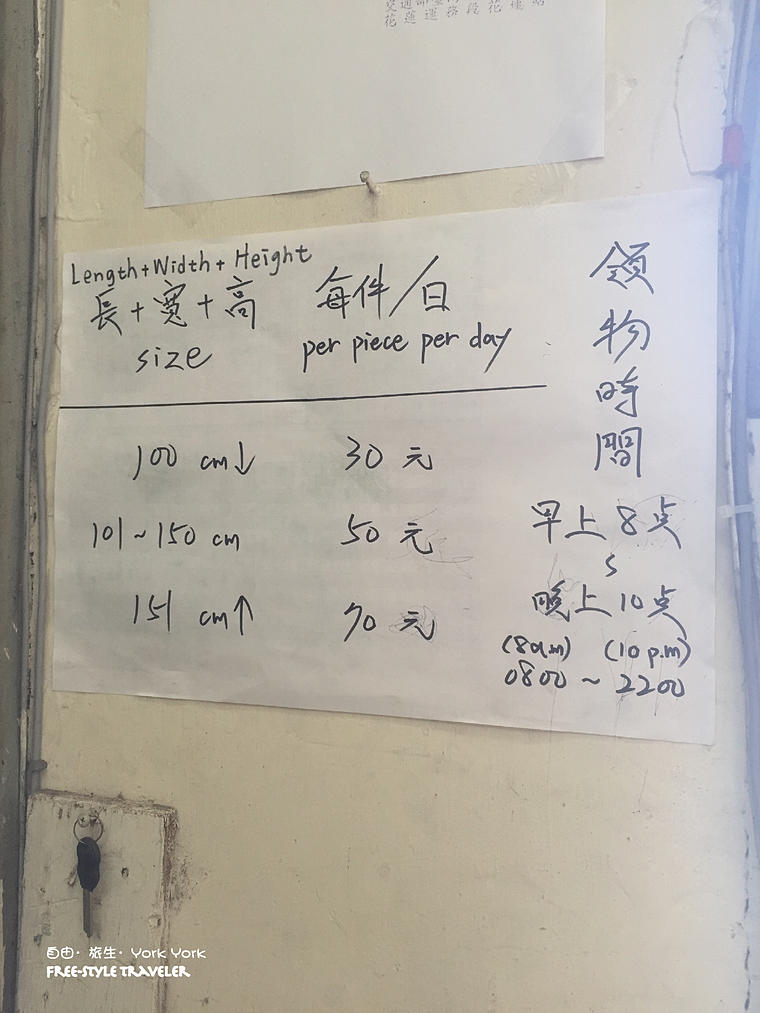 Length+Width+Height
長+寬+高
size
每件/日
per piece per day
100 cm↓ 30 元
101~150 cm 50 元
151 cm↑ 70 元
領物時間
早上8点
~
晚上10点
(8a.m) (10 p.m)
0800 ~ 2200
自由·旅生·York York
FREE-STYLE TRAVELER